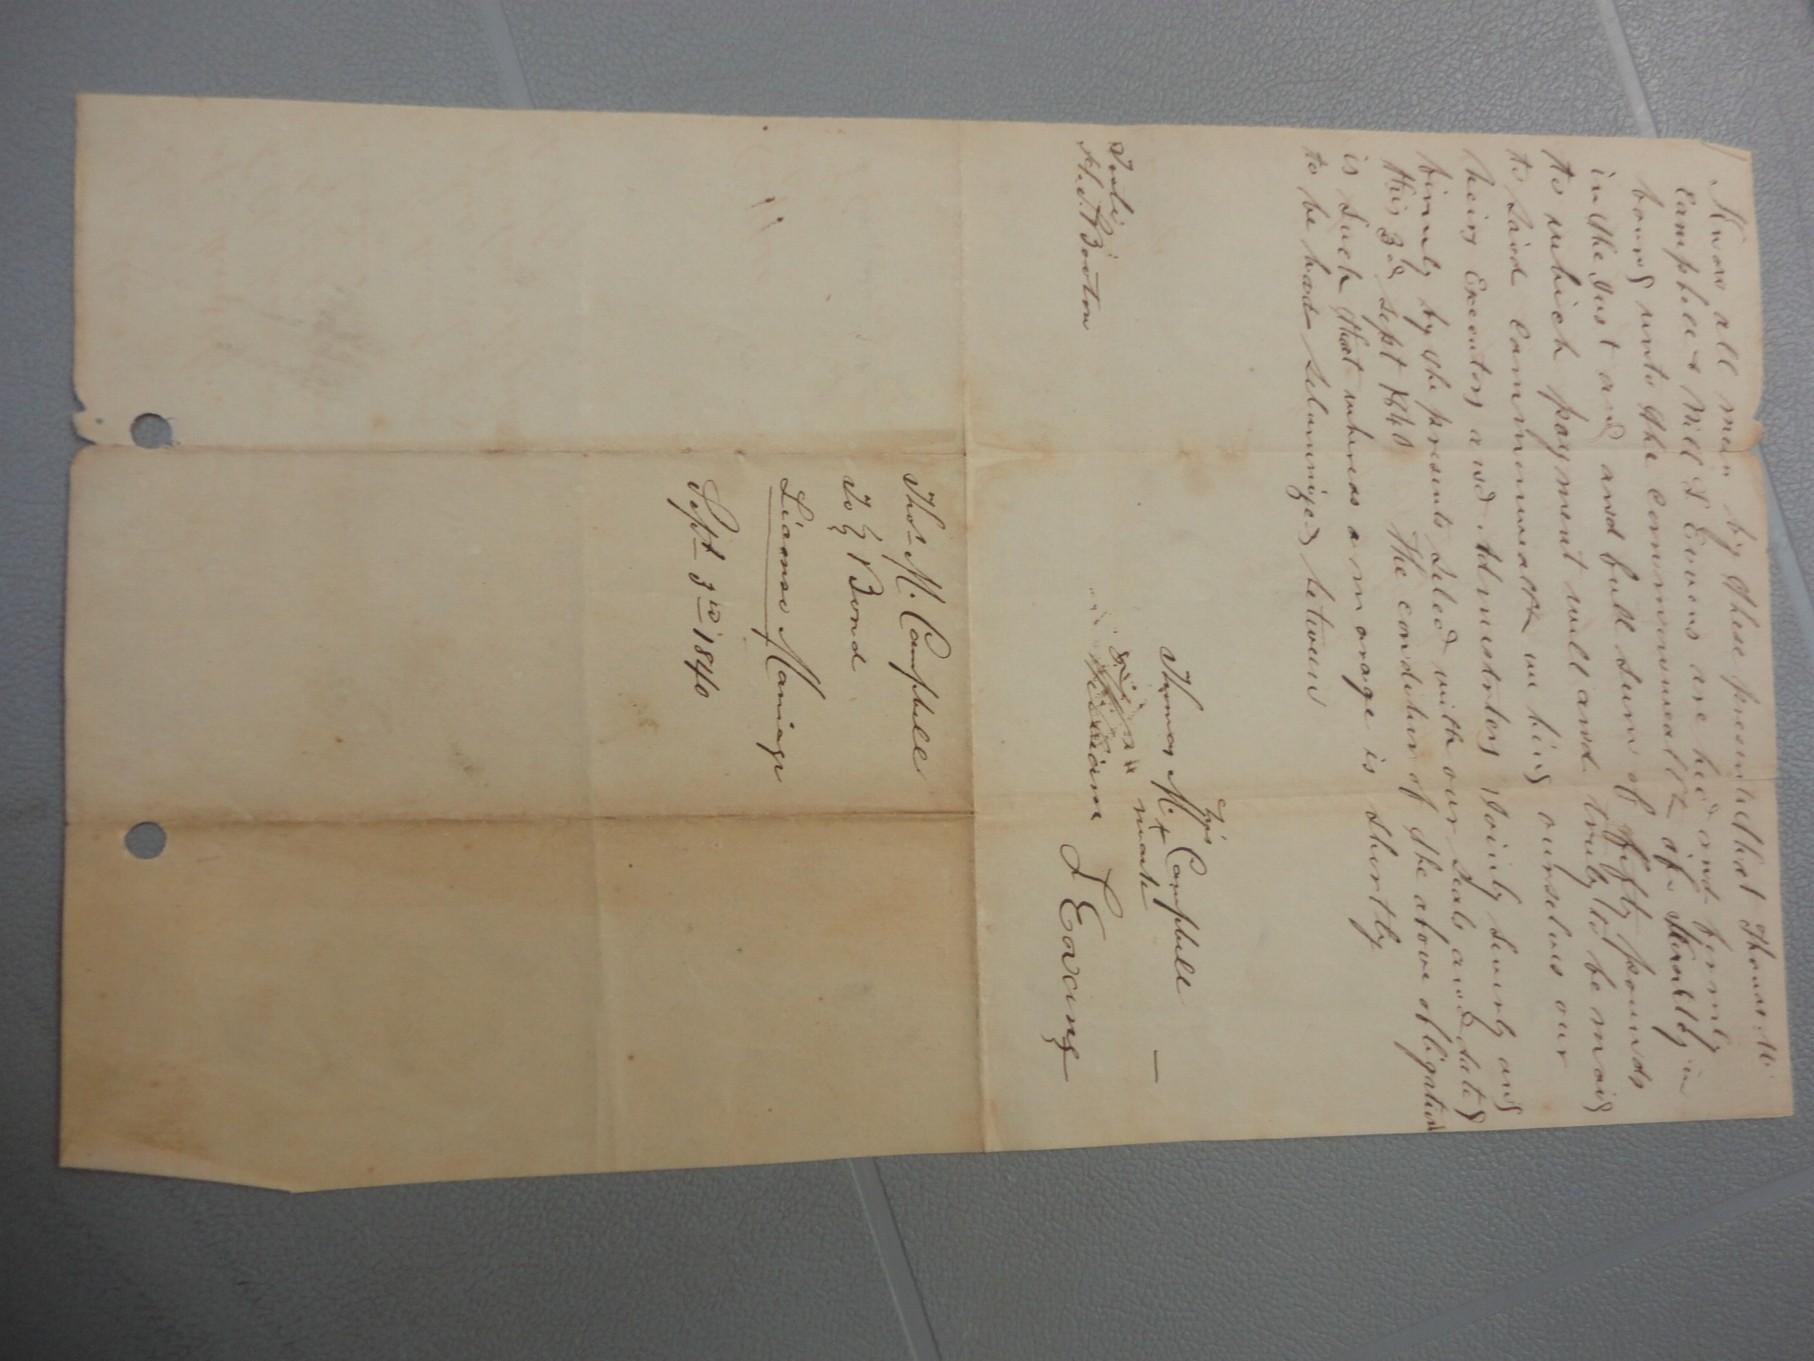 Know all men by these presents that Thomas M
Campbell & Will S Ewens are held and firmly
bound unto the Commonwealth of Kentucky in
in the Just and and full sum of fifty pounds
to which payment will and truly to be maid
to said Commonwealth we bind ourselves our
heirs Executors and Admestrators Jointly Severly and
firmly by the presents Seled with our Seals and dated
this 3d Sept 1840 The condition of the above obligation
is Such that whereas a marage is Shortly
to be had Selemnized betwen
his
Thomas M. x Campbell
mark
Teste
William L Ewing
Thos M. Campbell
To } Bond
Licanse Marriage
Sept 3rd 1840